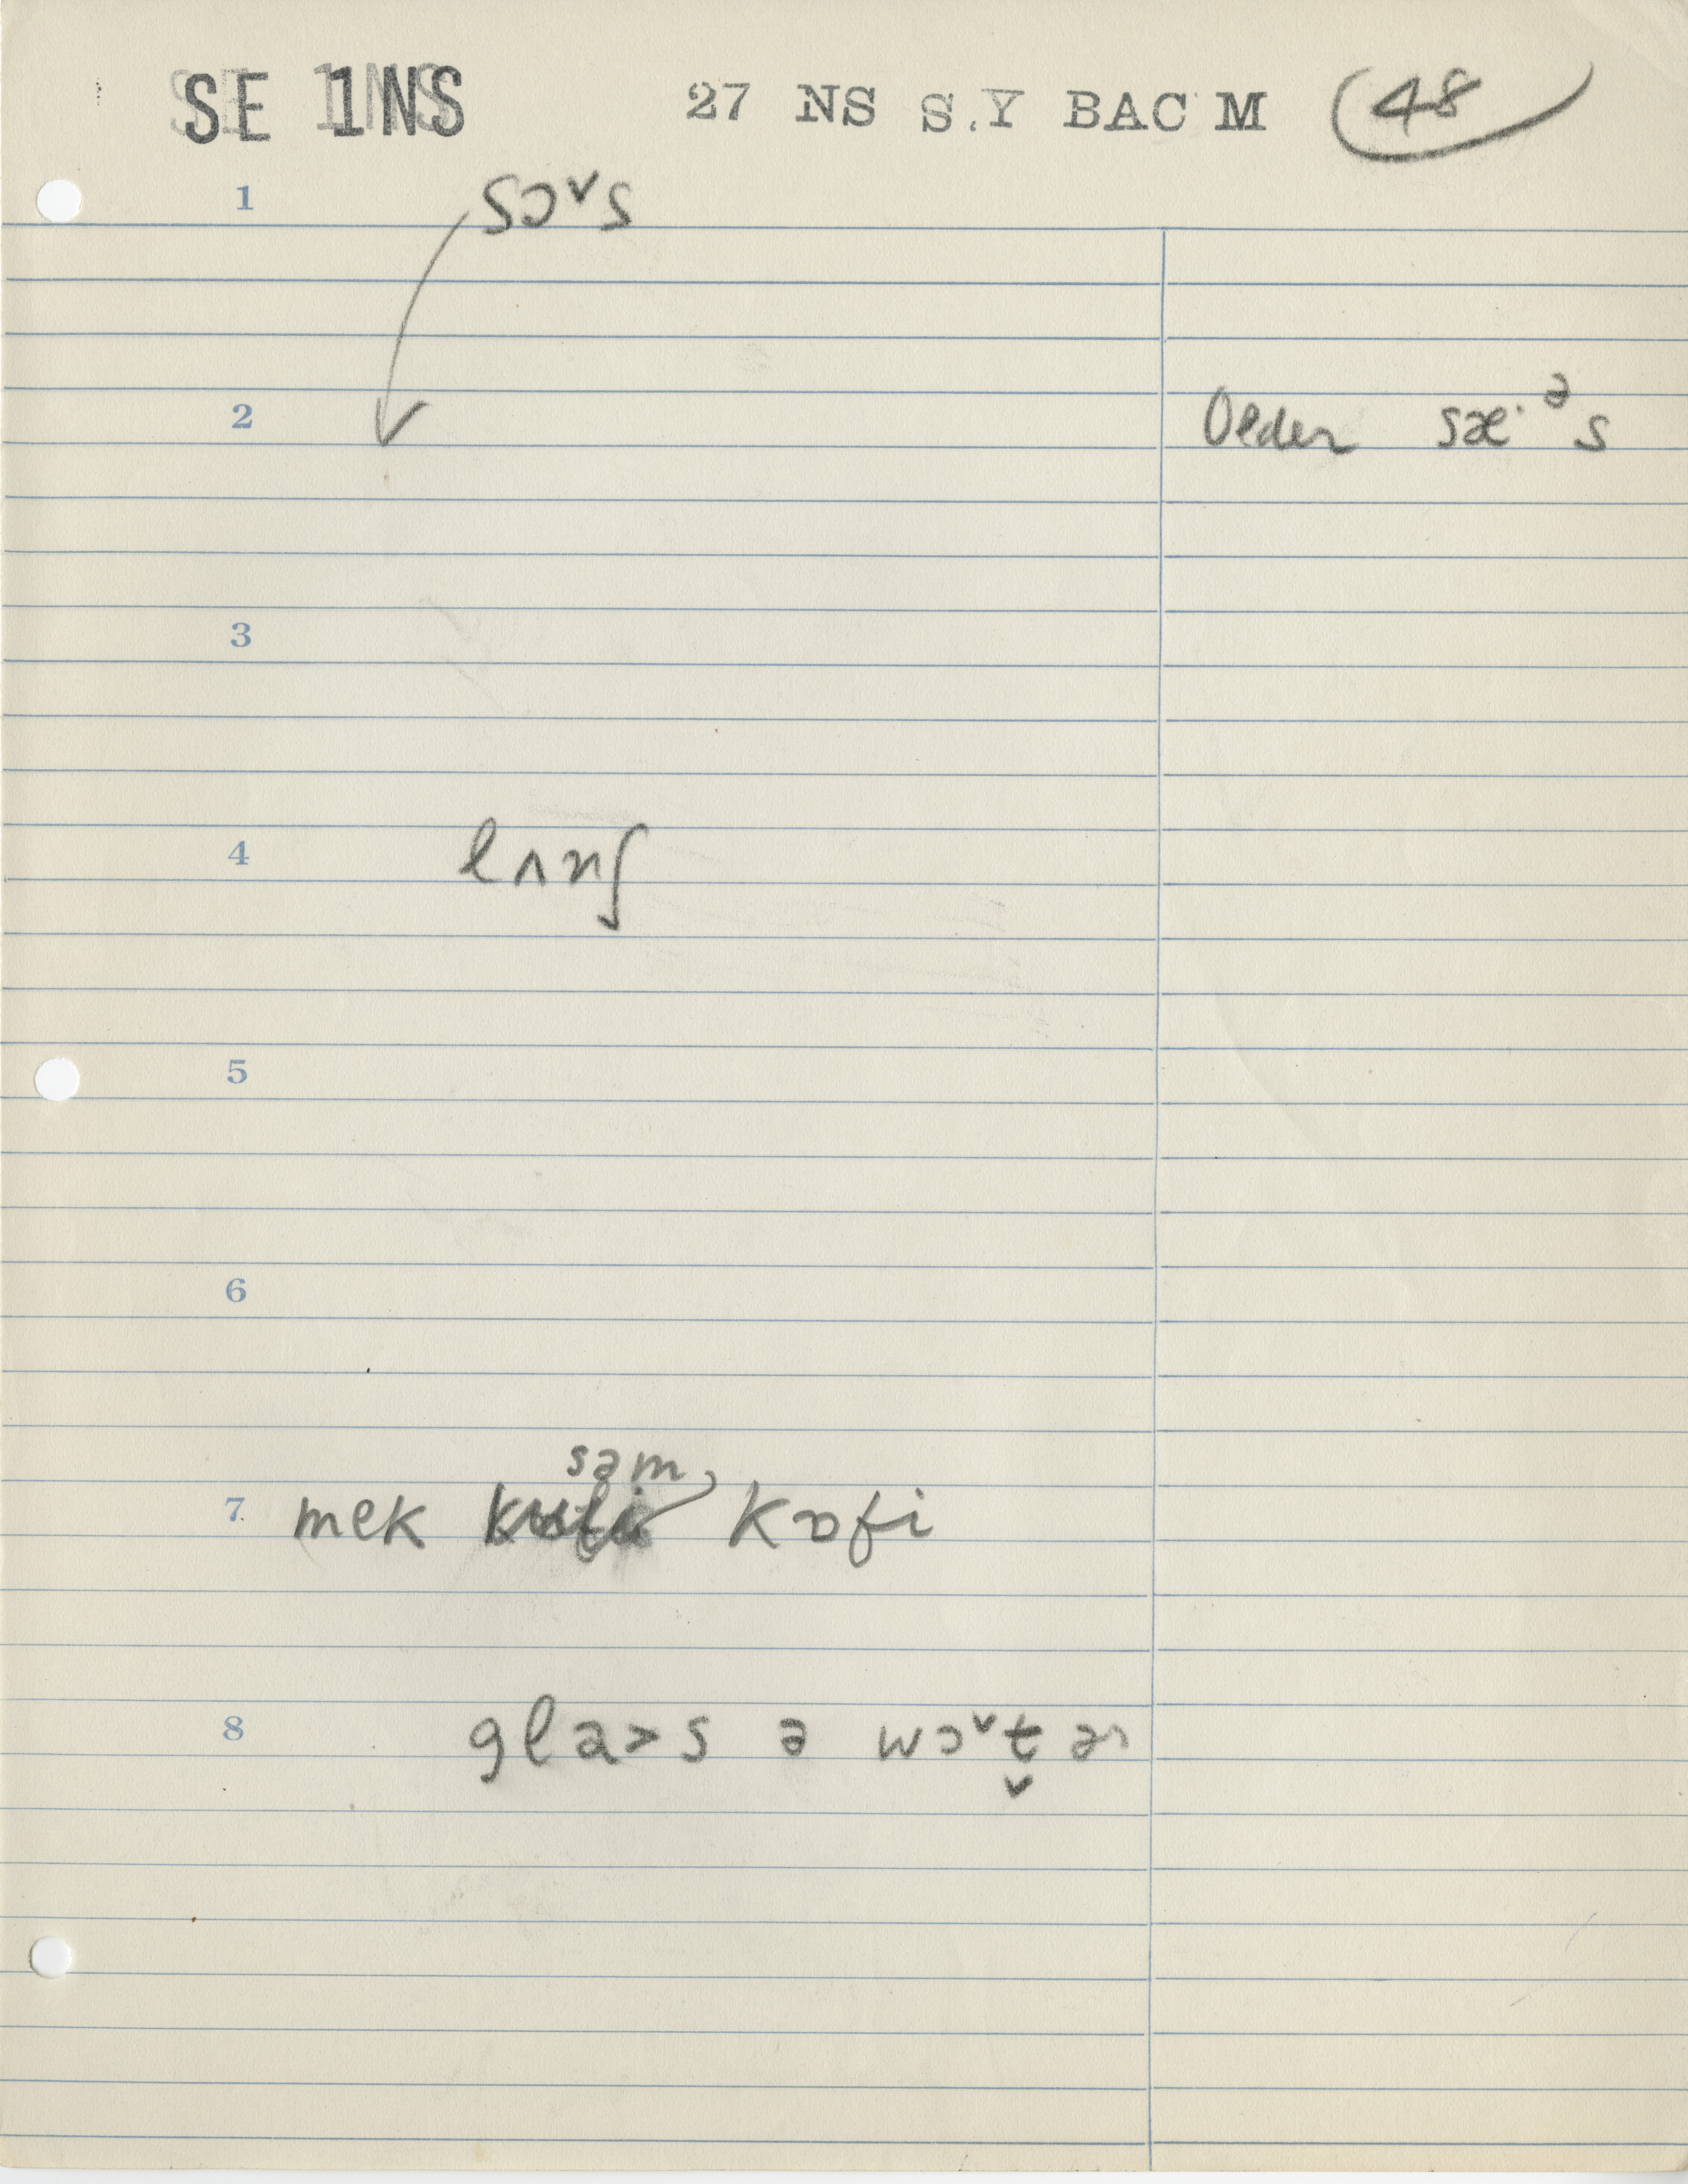 SE 1NS 27 NS S.Y BAC M 48
1 sɔˇs
2 Older sæ·ᵊs
3
4 lʌnʃ
5
6
7 mek səm kɒfi
8 gla>s ə wɔˇt̬ɚ